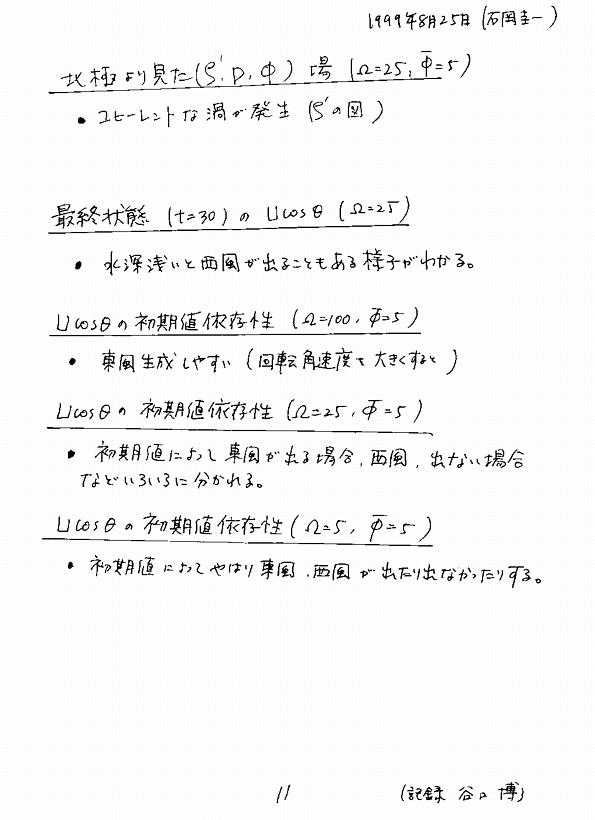 1999年8月25日 (石岡圭一)
北極より見た(ζ', D, Φ) 場 (Ω=25, Φ̄=5)
• コヒーレントな渦が発生 (ζ'の図)
最終状態 (t=30) の Ucosθ (Ω=25)
• 水深浅いと西風が出ることもある様子がわかる。
Ucosθの初期値依存性 (Ω=100, Φ̄=5)
• 東風生成しやすい (回転角速度を大きくすると)
Ucosθの初期値依存性 (Ω=25, Φ̄=5)
• 初期値によって東風が出る場合, 西風, 出ない場合
などいろいろに分かれる。
Ucosθの初期値依存性 (Ω=5, Φ̄=5)
• 初期値によってやはり東風, 西風が出たり出なかったりする。
11
(記録 谷口 博)